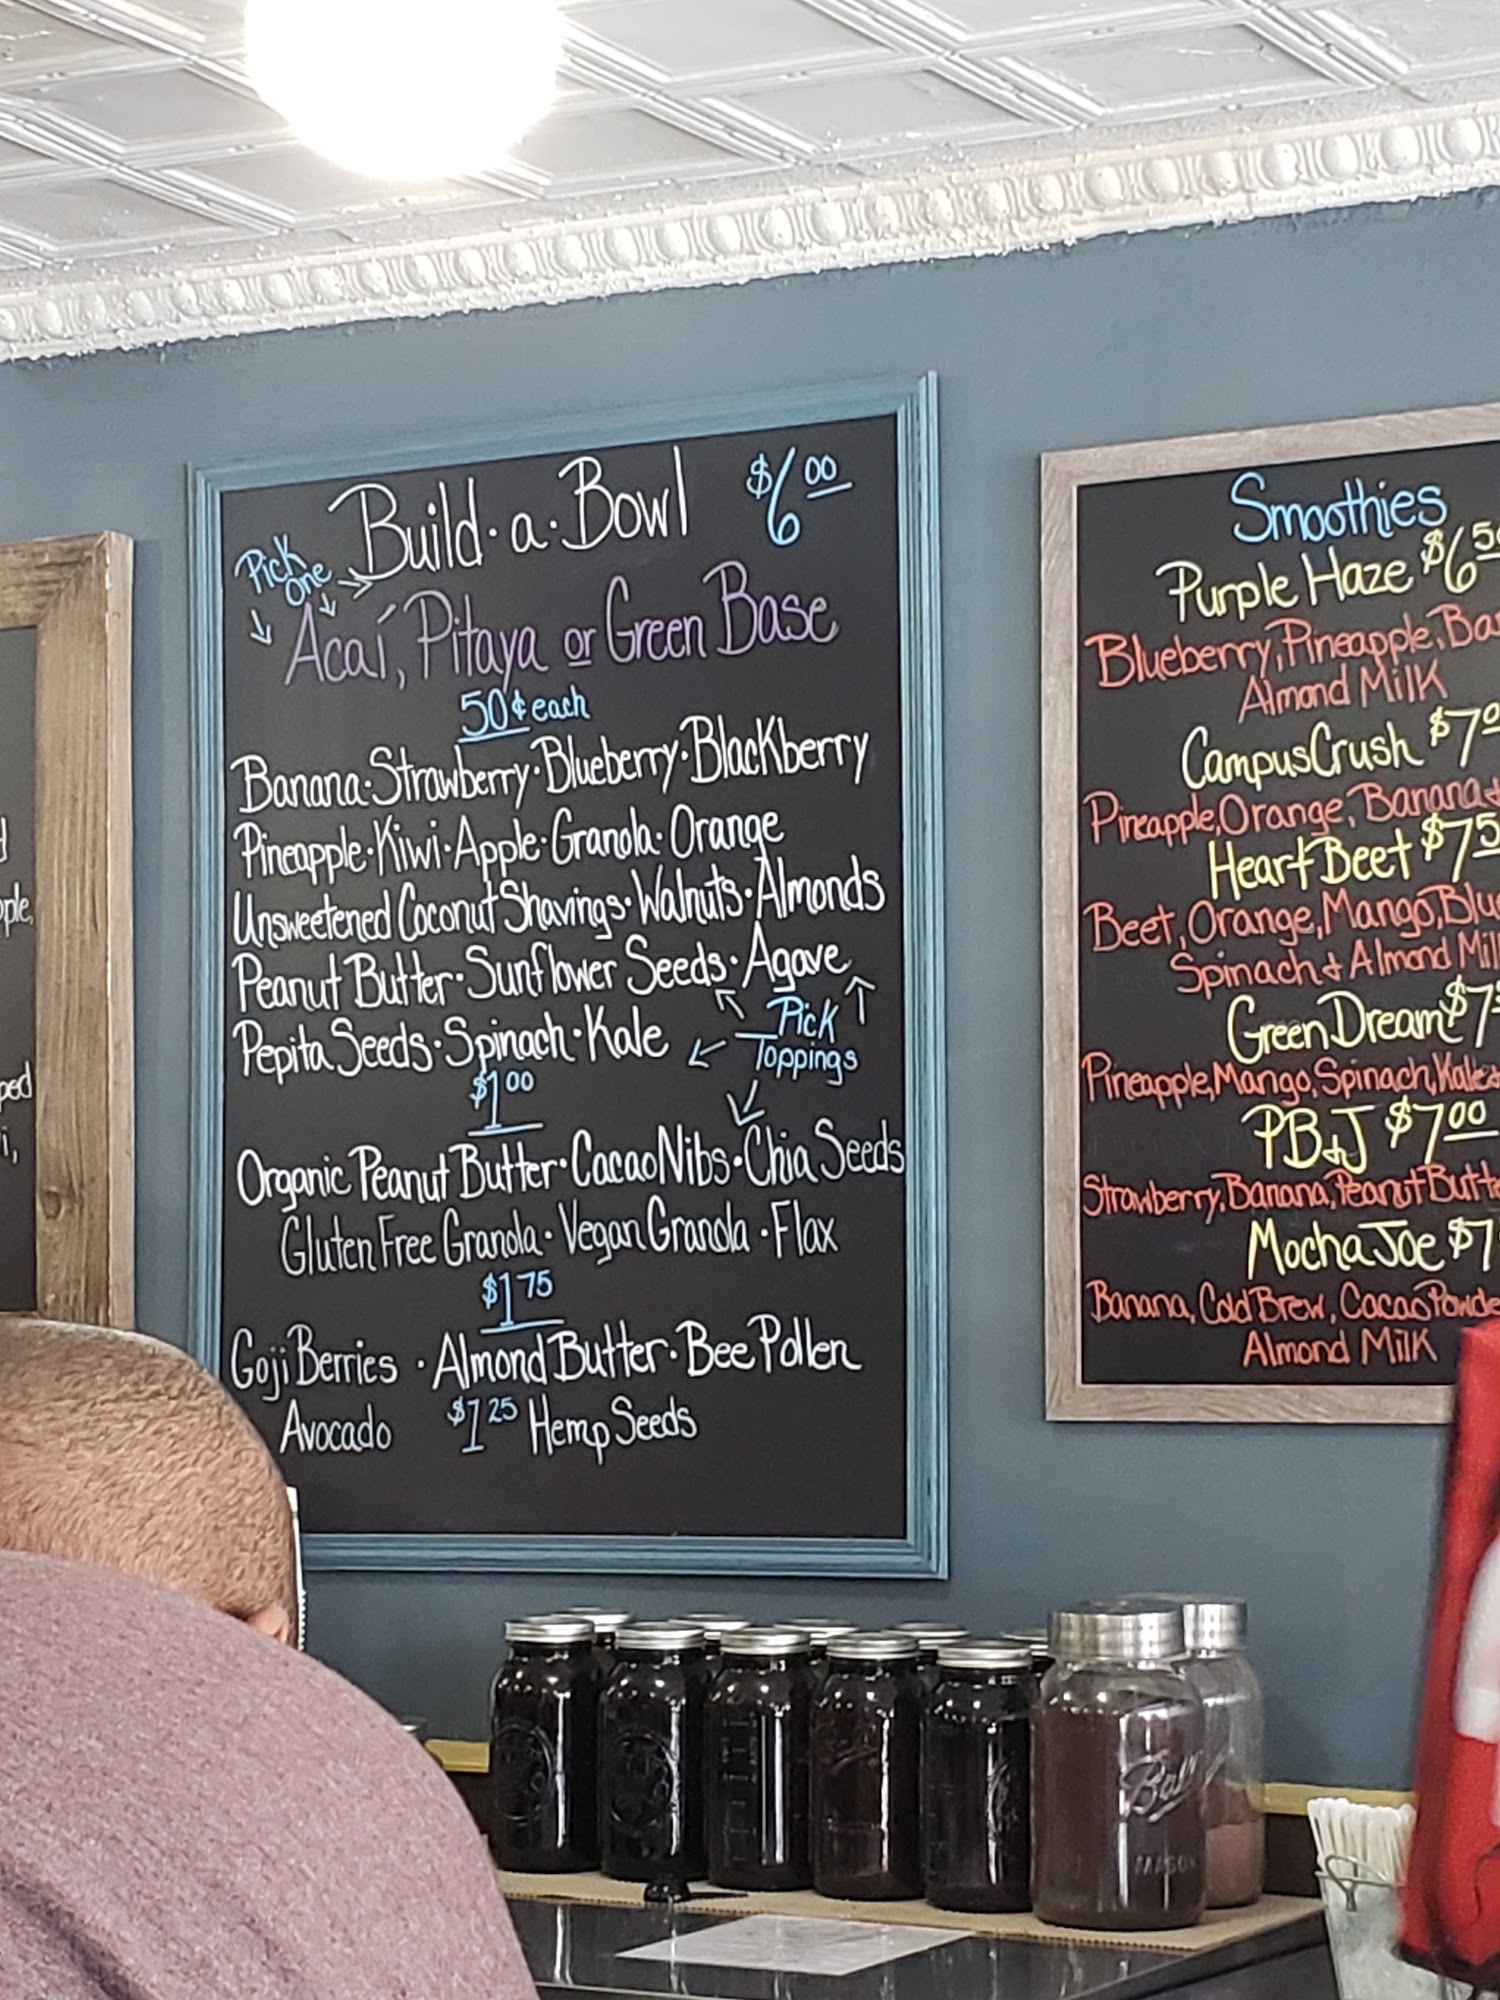 Build·a·Bowl $6.00
Pick
One
Acaí, Pitaya or Green Base
50¢ each
Banana·Strawberry·Blueberry·Blackberry
Pineapple·Kiwi·Apple·Granola·Orange
Unsweetened Coconut Shavings·Walnuts·Almonds
Peanut Butter·Sunflower Seeds·Agave
Pepita Seeds·Spinach·Kale
Pick
Toppings
$1.00
Organic Peanut Butter·Cacao Nibs·Chia Seeds
Gluten Free Granola·Vegan Granola·Flax
$1.75
Goji Berries·Almond Butter·Bee Pollen
Avocado $1.25 Hemp Seeds
Smoothies
Purple Haze $6.50
Blueberry, Pineapple,
Almond Milk
Campus Crush $7.0
Pineapple, Orange, Banana &
Heart Beet $7.5
Beet, Orange, Mango,
Spinach & Almond
Green Dream $7
Pineapple, Mango, Spinach, Kale
PB&J $7.00
Strawberry, Banana, Peanut
Mocha Joe $7
Banana, Cold Brew, Cacao
Almond Milk
Ball
MASON